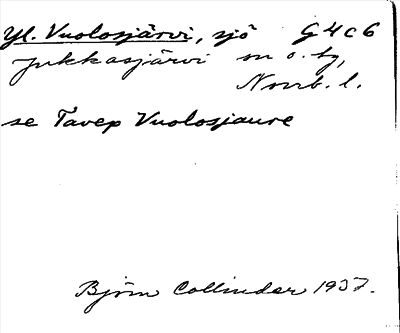 Yl. Vuolosjärvi, sjö G4c6
Jukkasjärvi sn o. tg,
Norrb. l.
se Tavep Vuolosjaure
Björn Collinder 1937.